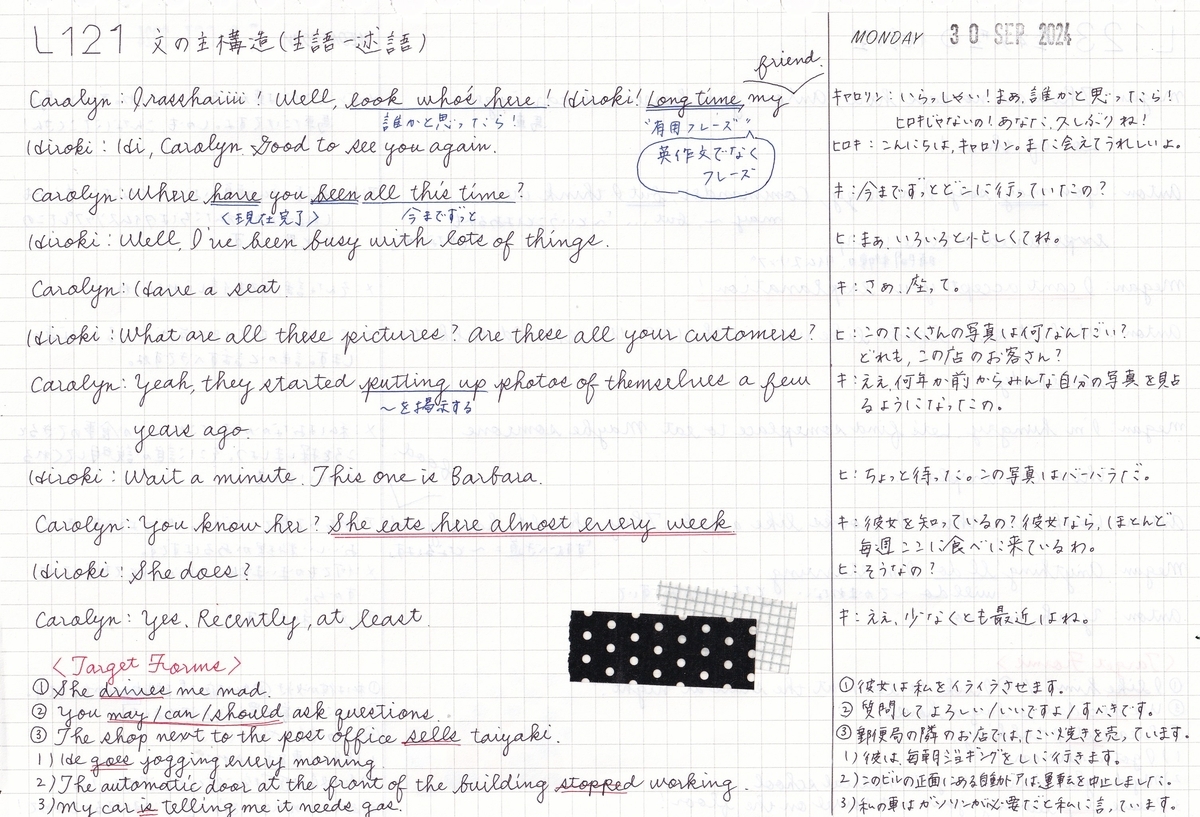 L121 文の主構造(主語-述語)
MONDAY 30 SEP 2024
friend.
Carolyn: Irasshaiiii! Well, look who's here! Hiroki! Long time, my
誰かと思ったら!
"有用フレーズ"
英作文でなく
フレーズ
Hiroki: Hi, Carolyn. Good to see you again.
Carolyn: Where have you been all this time?
〈現在完了〉
今までずっと
Hiroki: Well, I've been busy with lots of things.
Carolyn: Have a seat.
Hiroki: What are all these pictures? Are these all your customers?
Carolyn: Yeah, they started putting up photos of themselves a few
~を掲示する
years ago.
Hiroki: Wait a minute. This one is Barbara.
Carolyn: You know her? She eats here almost every week
Hiroki: She does?
Carolyn: Yes. Recently, at least.
〈Target Forms〉
① She drives me mad.
② You may/can/should ask questions.
③ The shop next to the post office sells taiyaki.
1) He goes jogging every morning.
2) The automatic door at the front of the building stopped working.
3) My car is telling me it needs gas.
キャロリン:いらっしゃい!まあ、誰かと思ったら!
ヒロキじゃないの!あなた、久しぶりね!
ヒロキ:こんにちは、キャロリン。また会えてうれしいよ。
キ:今までずっとどこに行っていたの?
ヒ:まあ、いろいろと忙しくてね。
キ:さあ、座って。
ヒ:このたくさんの写真は何なんだい?
どれも、この店のお客さん?
キ:ええ、何年か前からみんな自分の写真を貼
るようになったの。
ヒ:ちょっと待った。この写真はバーバラだ。
キ:彼女を知っているの?彼女なら、ほとんど
毎週ここに食べに来ているわ。
ヒ:そうなの?
キ:ええ、少なくとも最近はね。
①彼女は私をイライラさせます。
②質問してよろしい/いいですよ/すべきです。
③郵便局の隣のお店では、たい焼きを売っています。
1)彼は、毎朝ジョギングをしに行きます。
2)このビルの正面にある自動ドアは、運転を中止しました。
3)私の車はガソリンが必要だと私に言っています。